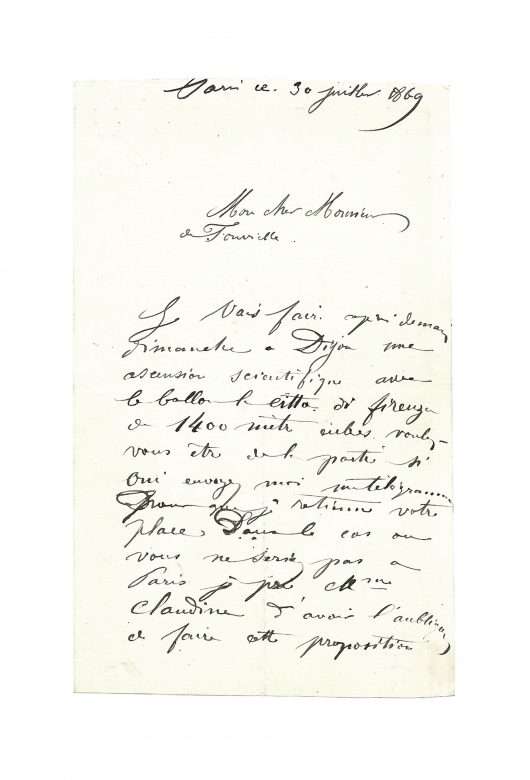 Paris ce 30 juillet 1869
Mon cher Monsieur
de Fonvielle.
Je Vais faire après demain
dimanche a Dijon une
ascension scientifique avec
le ballon la citta di firenze
de 1400 mètr cubes. voulez-
vous être de la partie si
oui envoyez moi un télégramme
pour que je retienne votre
place Dans le cas ou
vous ne seriez pas a
Paris je prie Mme
Claudine d'avoir l'
de faire cette proposition